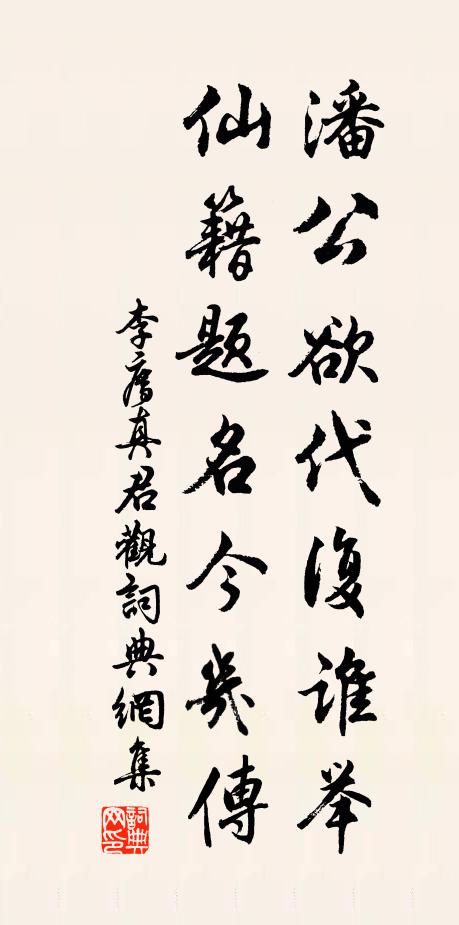 潘公欲代復誰举
仙籍題名今幾傳
李廌真君觀詞典網集
詞典
网印